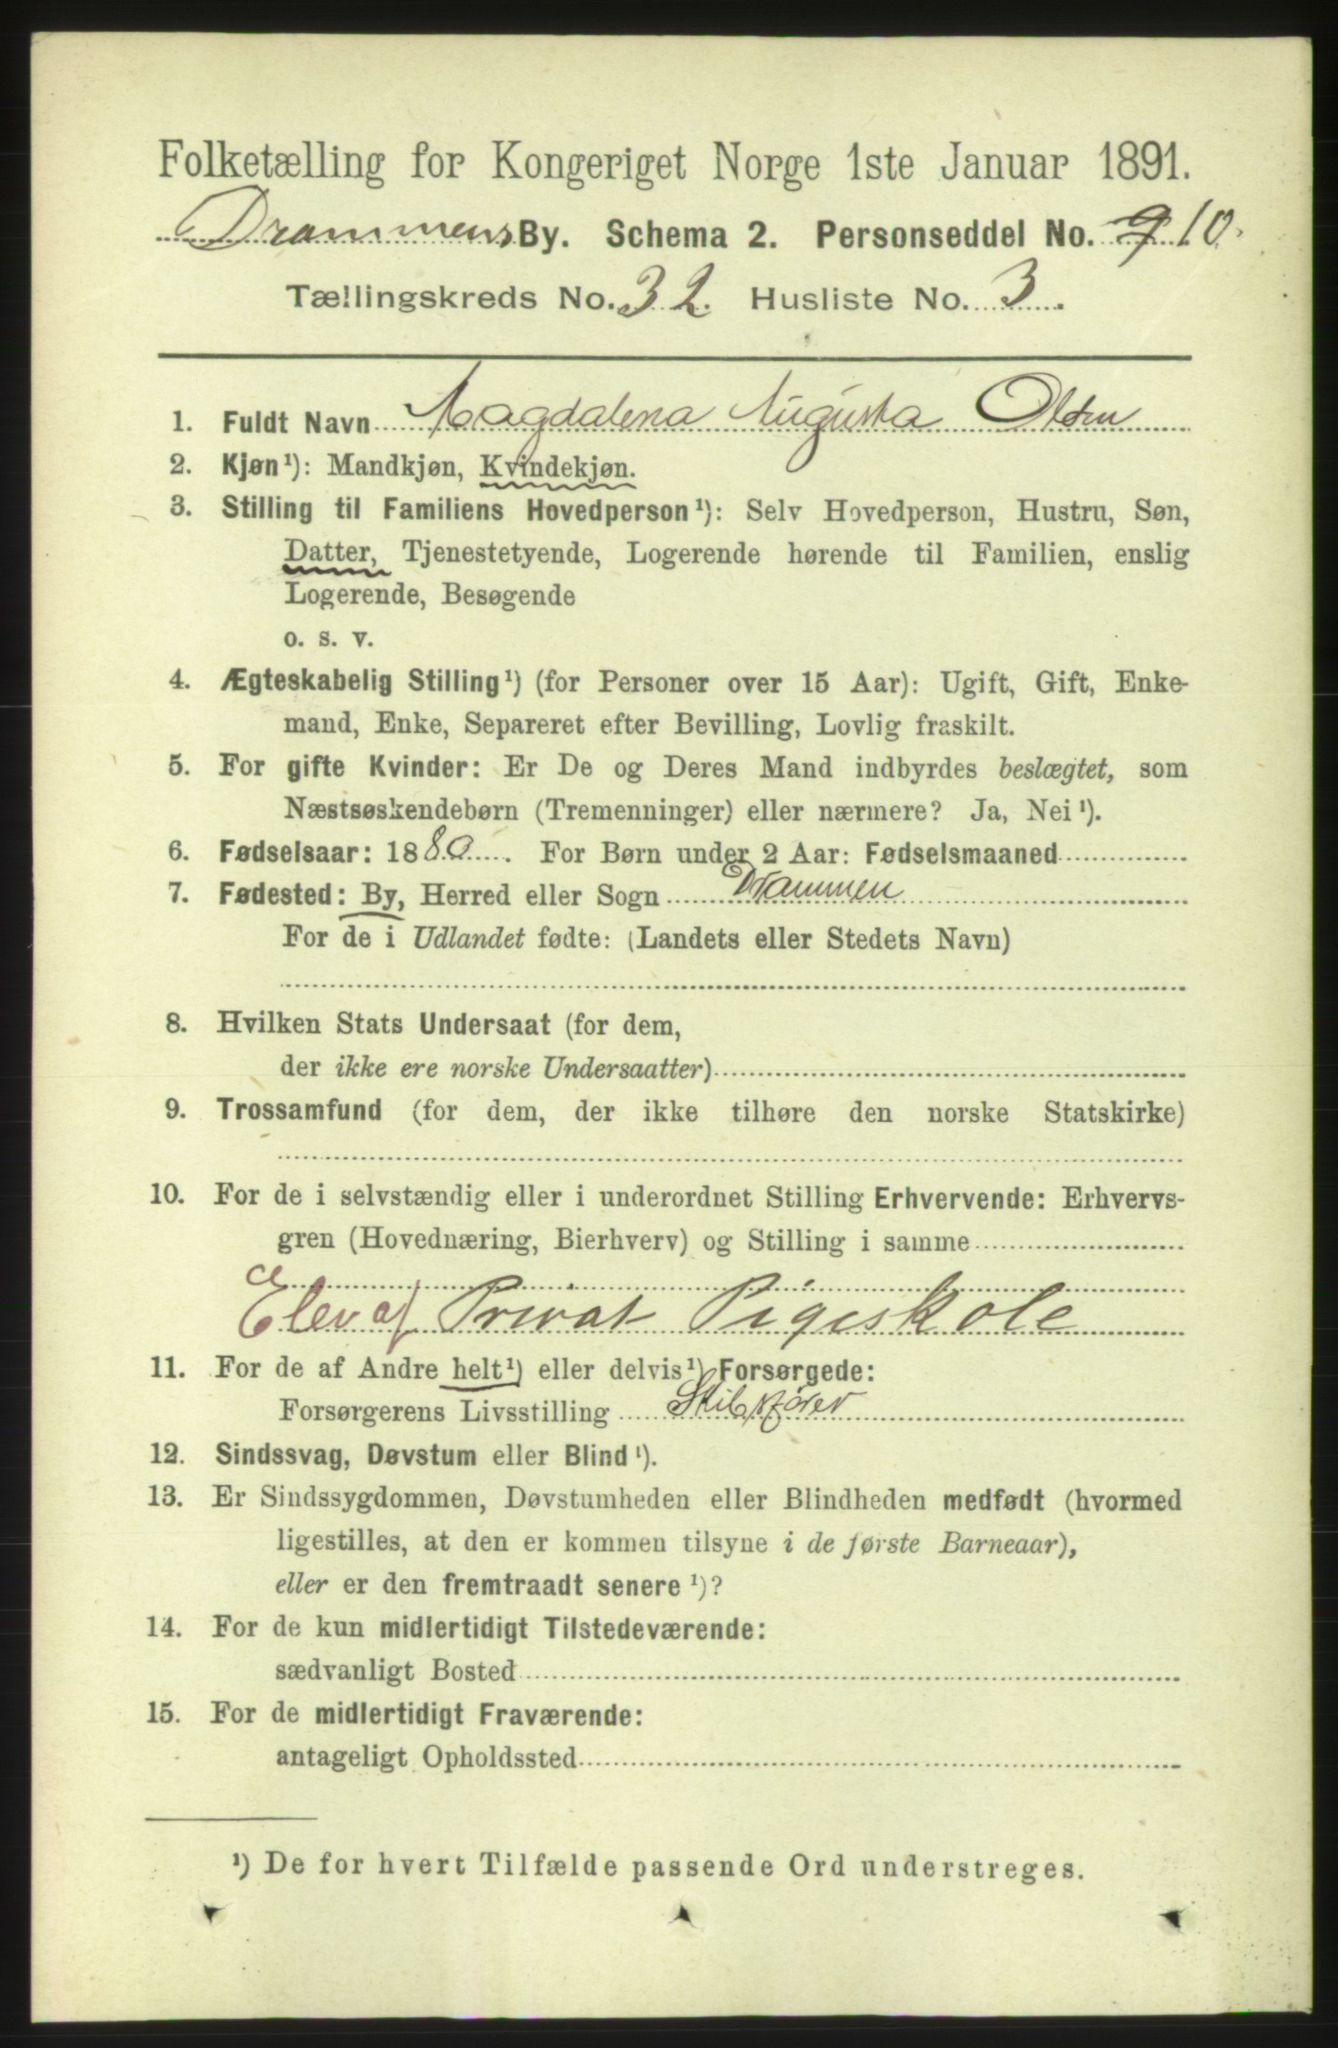 Folketælling for Kongeriget Norge 1ste Januar 1891.
Drammens By. Schema 2. Personseddel No. 9 10.
Tællingskreds No. 32. Husliste No. 3.
1. Fuldt Navn Magdalena Augusta Olsen
2. Kjøn¹): Mandkjøn, Kvindekjøn.
3. Stilling til Familiens Hovedperson¹): Selv Hovedperson, Hustru, Søn,
Datter, Tjenestetyende, Logerende hørende til Familien, enslig
Logerende, Besøgende
o. s. v.
4. Ægteskabelig Stilling¹) (for Personer over 15 Aar): Ugift, Gift, Enke-
mand, Enke, Separeret efter Bevilling, Lovlig fraskilt.
5. For gifte Kvinder: Er De og Deres Mand indbyrdes beslægtet, som
Næstsøskendebørn (Tremenninger) eller nærmere? Ja, Nei¹).
6. Fødselsaar: 1880. For Børn under 2 Aar: Fødselsmaaned
7. Fødested: By, Herred eller Sogn Drammen
For de i Udlandet fødte: (Landets eller Stedets Navn)
8. Hvilken Stats Undersaat (for dem,
der ikke ere norske Undersaatter)
9. Trossamfund (for dem, der ikke tilhøre den norske Statskirke)
10. For de i selvstændig eller i underordnet Stilling Erhvervende: Erhvervs-
gren (Hovednæring, Bierhverv) og Stilling i samme
Elev af Privat Pigeskole
11. For de af Andre helt¹) eller delvis¹) Forsørgede:
Forsørgerens Livsstilling Skibsfører
12. Sindssvag, Døvstum eller Blind¹).
13. Er Sindssygdommen, Døvstumheden eller Blindheden medfødt (hvormed
ligestilles, at den er kommen tilsyne i de første Barneaar),
eller er den fremtraadt senere¹)?
14. For de kun midlertidigt Tilstedeværende:
sædvanligt Bosted
15. For de midlertidigt Fraværende:
antageligt Opholdssted
¹) De for hvert Tilfælde passende Ord understreges.